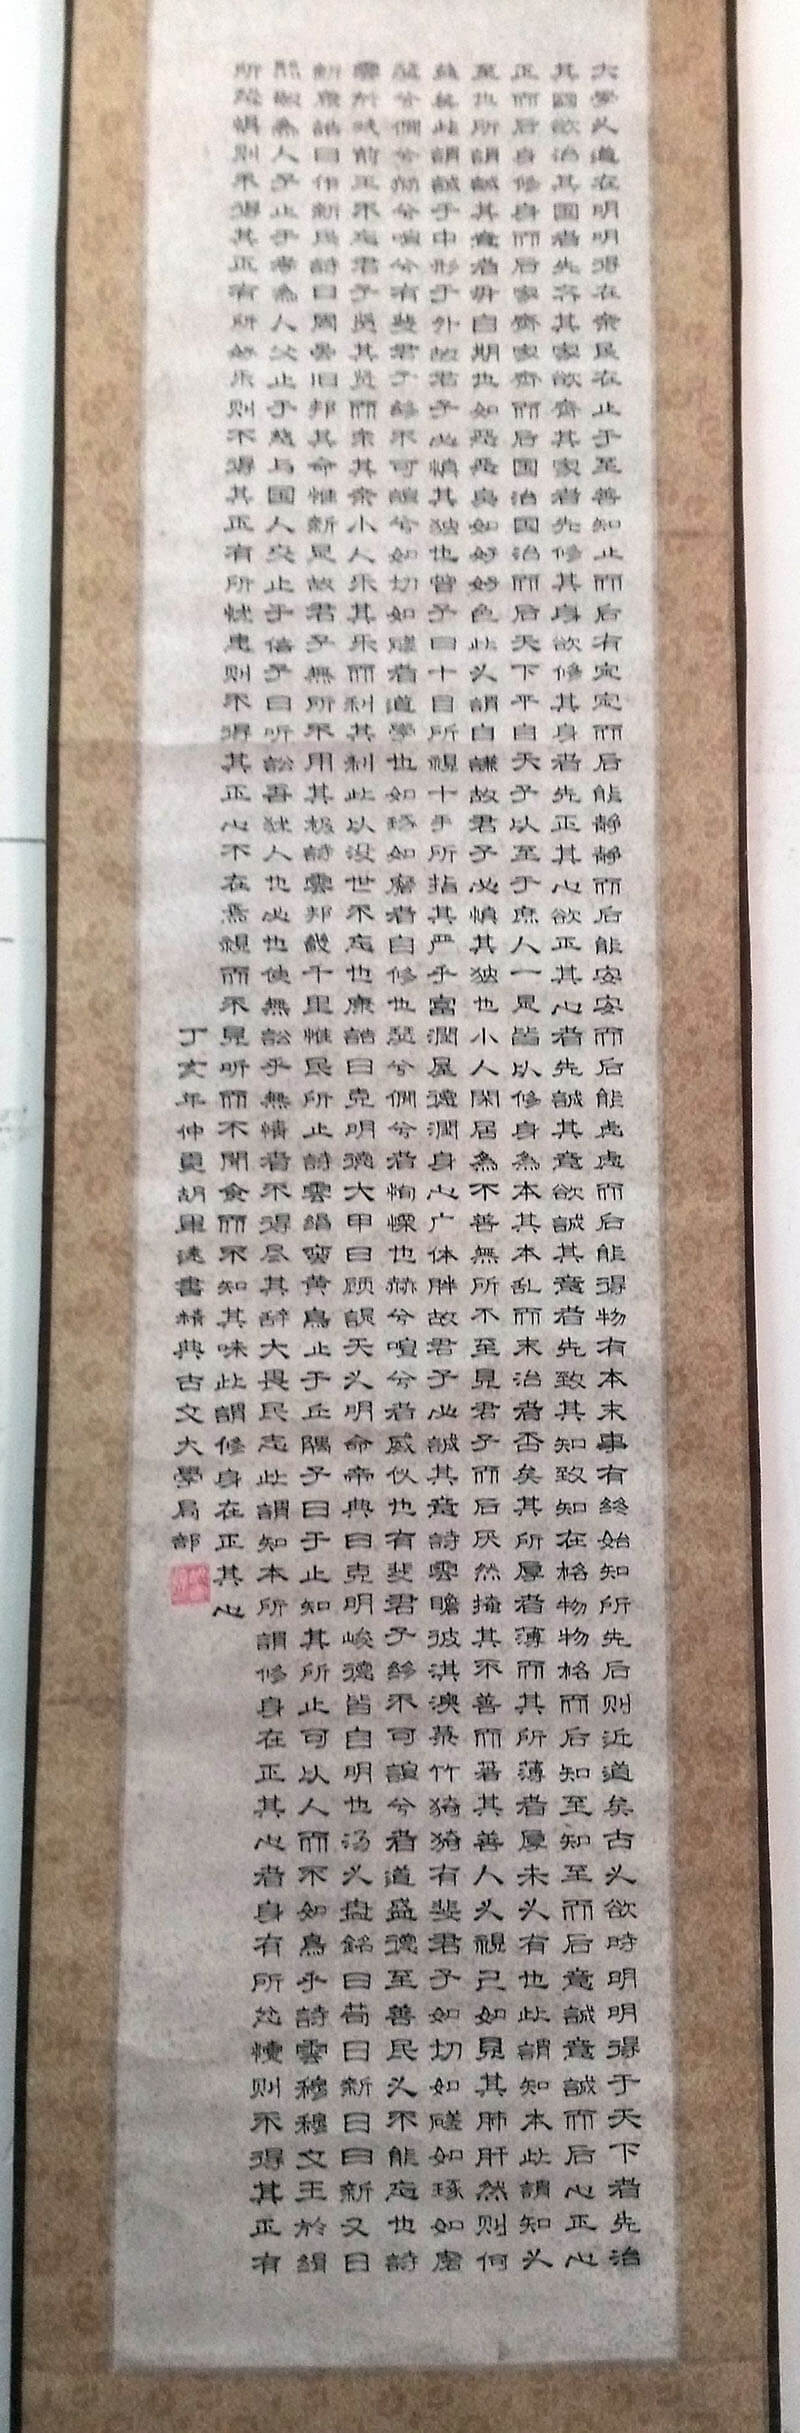 大學之道在明明得在亲民在止于至善知止而后有定定而后能静静而后能安安而后能虑虑而后能得物有本末事有终始知所先后则近道矣古之欲時明明得于天下者先治
其國欲治其國者先齐其家欲齊其家者先修其身欲修其身者先正其心欲正其心者先誠其意欲誠其意者先致其知致知在格物物格而后知至知至而后意誠意誠而后心正心
正而后身修身而后家齊家齊而后国治国治而后天下平自天子以至于庶人一是皆以修身為本其本乱而末治者否矣其所厚者薄而其所薄者厚未之有也此謂知本此謂知之
至也所謂誠其意者毋自期也如惡惡臭如好好色此之謂自謙故君子必慎其独也小人閑居為不善無所不至見君子而后厌然掩其不善而著其善人之視己如見其肺肝然则何
益矣此謂誠于中形于外故君子必慎其独也曾子曰十目所視十手所指其严乎富潤屋德潤身心广体胖故君子必誠其意詩雲瞻彼淇澳菉竹猗猗有斐君子如切如磋如琢如磨
瑟兮僩兮赫兮喧兮有斐君子終不可諠兮如切如磋者道學也如琢如磨者自修也瑟兮僩兮者恂慄也赫兮喧兮者威仪也有斐君子終不可諠兮者道盛德至善民之不能忘也詩
雲於戏前王不忘君子贤其贤而亲其亲小人乐其乐而利其利此以没世不忘也康誥曰克明德大甲曰顾諟天之明命帝典曰克明峻德皆自明也汤之盘銘曰苟日新日日新又日
新康誥曰作新民詩曰周雖旧邦其命惟新是故君子無所不用其极詩雲邦畿千里惟民所止詩雲緡蛮黄鳥止于丘隅子曰于止知其所止可以人而不如鳥乎詩雲穆穆文王於緝
熙敬為人子止于孝為人父止于慈与国人交止于信子曰听訟吾犹人也必也使無訟乎無情者不得尽其辞大畏民志此謂知本所謂修身在正其心者身有所忿懥则不得其正有
所恐惧则不得其正有所好乐则不得其正有所忧患则不得其正心不在焉視而不見听而不聞食而不知其味此謂修身在正其心
丁亥年仲夏胡書精典古文大學局部